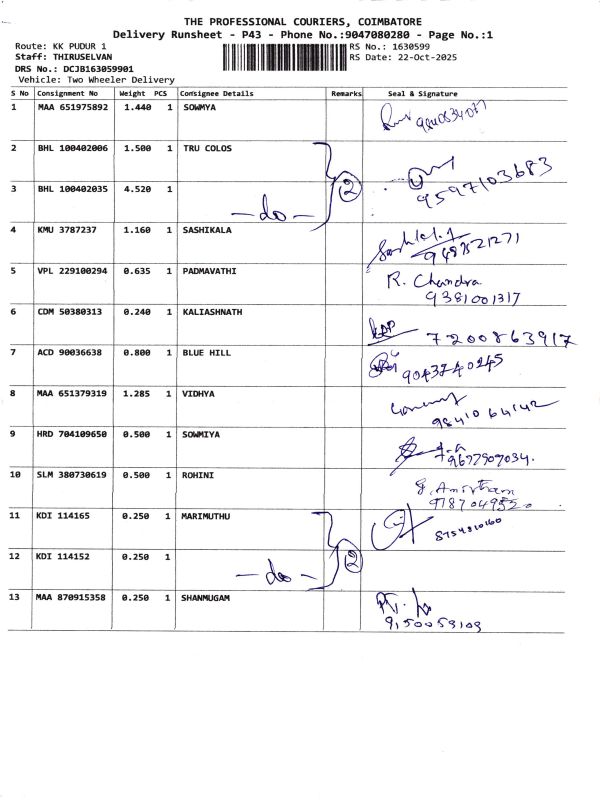 THE PROFESSIONAL COURIERS, COIMBATORE
Delivery Runsheet - P43 - Phone No.:9047080280 - Page No.:1
Route: KK PUDUR 1 RS No.: 1630599
Staff: THIRUSELVAN RS Date: 22-Oct-2025
DRS No.: DCJB163059901
Vehicle: Two Wheeler Delivery
S No Consignment No Weight PCS Consignee Details Remarks Seal & Signature
1 MAA 651975892 1.440 1 SOWMYA
2 BHL 100402006 1.500 1 TRU COLOS 2 9597103683
3 BHL 100402035 4.520 1 -do-
4 KMU 3787237 1.160 1 SASHIKALA
5 VPL 229100294 0.635 1 PADMAVATHI R. Chandra
9381001317
6 CDM 50380313 0.240 1 KALIASHNATH 7200863917
7 ACD 90036638 0.800 1 BLUE HILL 9043740245
8 MAA 651379319 1.285 1 VIDHYA 9841064142
9 HRD 704109650 0.500 1 SOWMIYA 9677907034.
10 SLM 380730619 0.500 1 ROHINI
11 KDI 114165 0.250 1 MARIMUTHU 2
12 KDI 114152 0.250 1 -do-
13 MAA 870915358 0.250 1 SHANMUGAM
9150059109